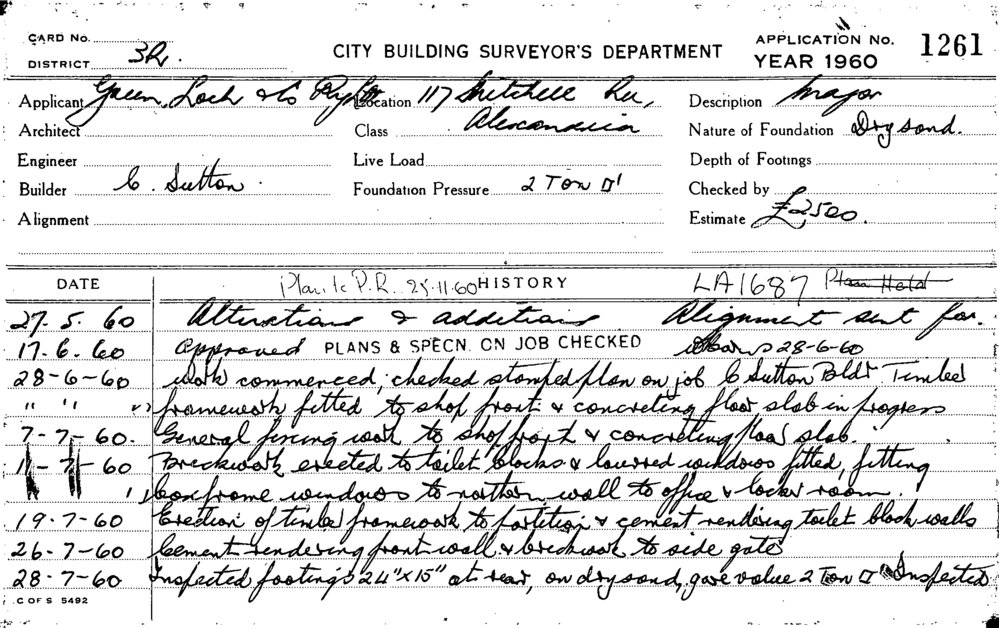 CARD No.
DISTRICT 3R.
CITY BUILDING SURVEYOR'S DEPARTMENT
APPLICATION No. 1261
YEAR 1960
Applicant Green, Loch & Co Location 117 Mitchell Rd,
Alexandria
Description Major
Architect
Class
Nature of Foundation Dry sand.
Engineer
Live Load
Depth of Footings
Builder C. Sutton.
Foundation Pressure 2 Ton □'
Checked by
Alignment
Estimate £2500.
DATE
HISTORY
Plan to P.R. 25.11.60
LA1687 Plan Held
27.5.60 Alterations & additions Alignment sent for.
17.6.60 Approved PLANS & SPECN. ON JOB CHECKED 28-6-60
28-6-60 Work commenced, checked stamped plan on job C Sutton Bldr Timber
" " " framework fitted to shop front & concreting floor slab in progress
7-7-60. General fixing work to shop front & concreting floor slab.
11-7-60 Brickwork erected to toilet blocks & louvred windows fitted, fitting
" boxframe windows to northern wall to office & locker room.
19-7-60 Erection of timber framework to partition & cement rendering toilet block walls
26-7-60 Cement rendering front wall & brickwork to side gate
28-7-60 Inspected footings 24"x15" at rear, on dry sand, gave value 2 Ton □' Inspected
C OF S 5492